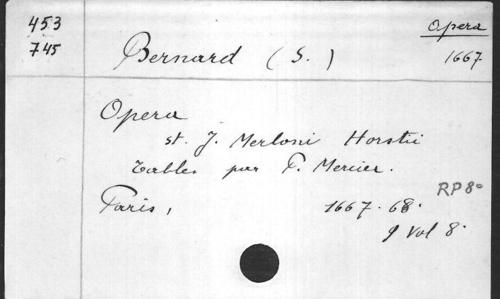 453
745
Opera
1667
Bernard (S.)
Opera
st. J. Merloni Horstii
Tables par P. Mercier.
RP 8º
Paris, 1667-68.
9 Vol 8º